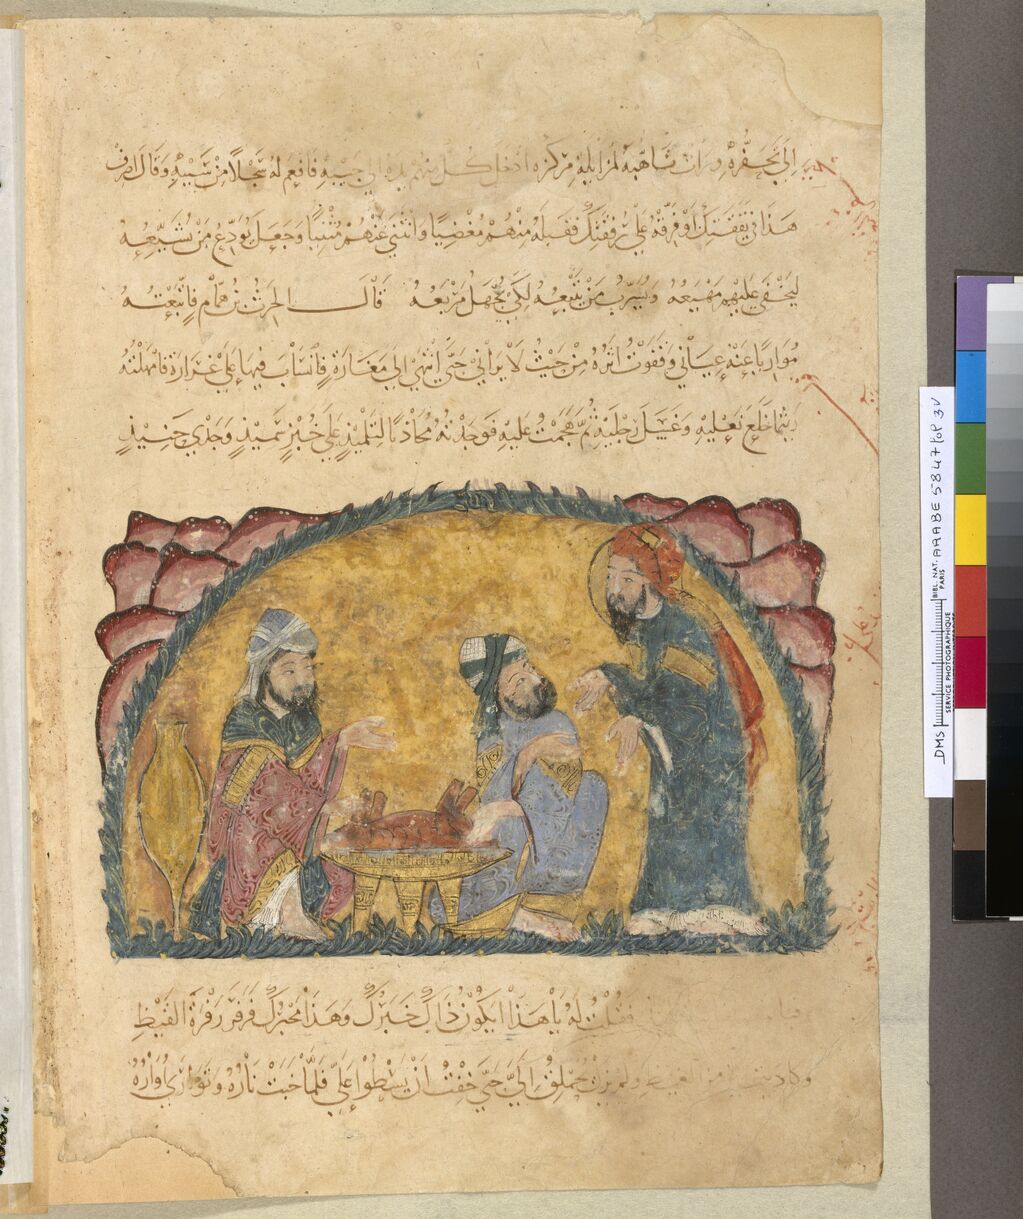 إلى تحفزه ورأت تأهبه لمزايلة مركزه أدخل كل منهم يده في جيبه فأفعم له سجلا من سيبه وقال اصرف
هذا في نفقتك أو فرقه على رفقتك فقبله منهم مغضيا وانثنى عنهم مثنيا وجعل يودع من يشيعه
ليخفى عليهم مهيعه ويسرب من يتبعه لكي يجهل مربعه قال الحرث بن همام فاتبعته
مواريا عنه عياني وقفوت أثره من حيث لا يراني حتى انتهى إلى مغارة فانساب فيها على غرارة فأمهلته
ريثما خلع نعليه وغسل رجليه ثم هجمت عليه فوجدته محاذيا لتلميذ على خبز سميذ وجدي حنيذ
فقلت له يا هذا أيكون ذاك خبرك وهذا مخبرك فزفر زفرة القيظ
وكاد يتميز من الغيظ ولم يزل يحملق إلي حتى خفت أن يسطوا علي فلما خبت ناره وتوارى أواره
DMS
SERVICE PHOTOGRAPHIQUE
BIBL. NAT.
PARIS
ARABE 5847